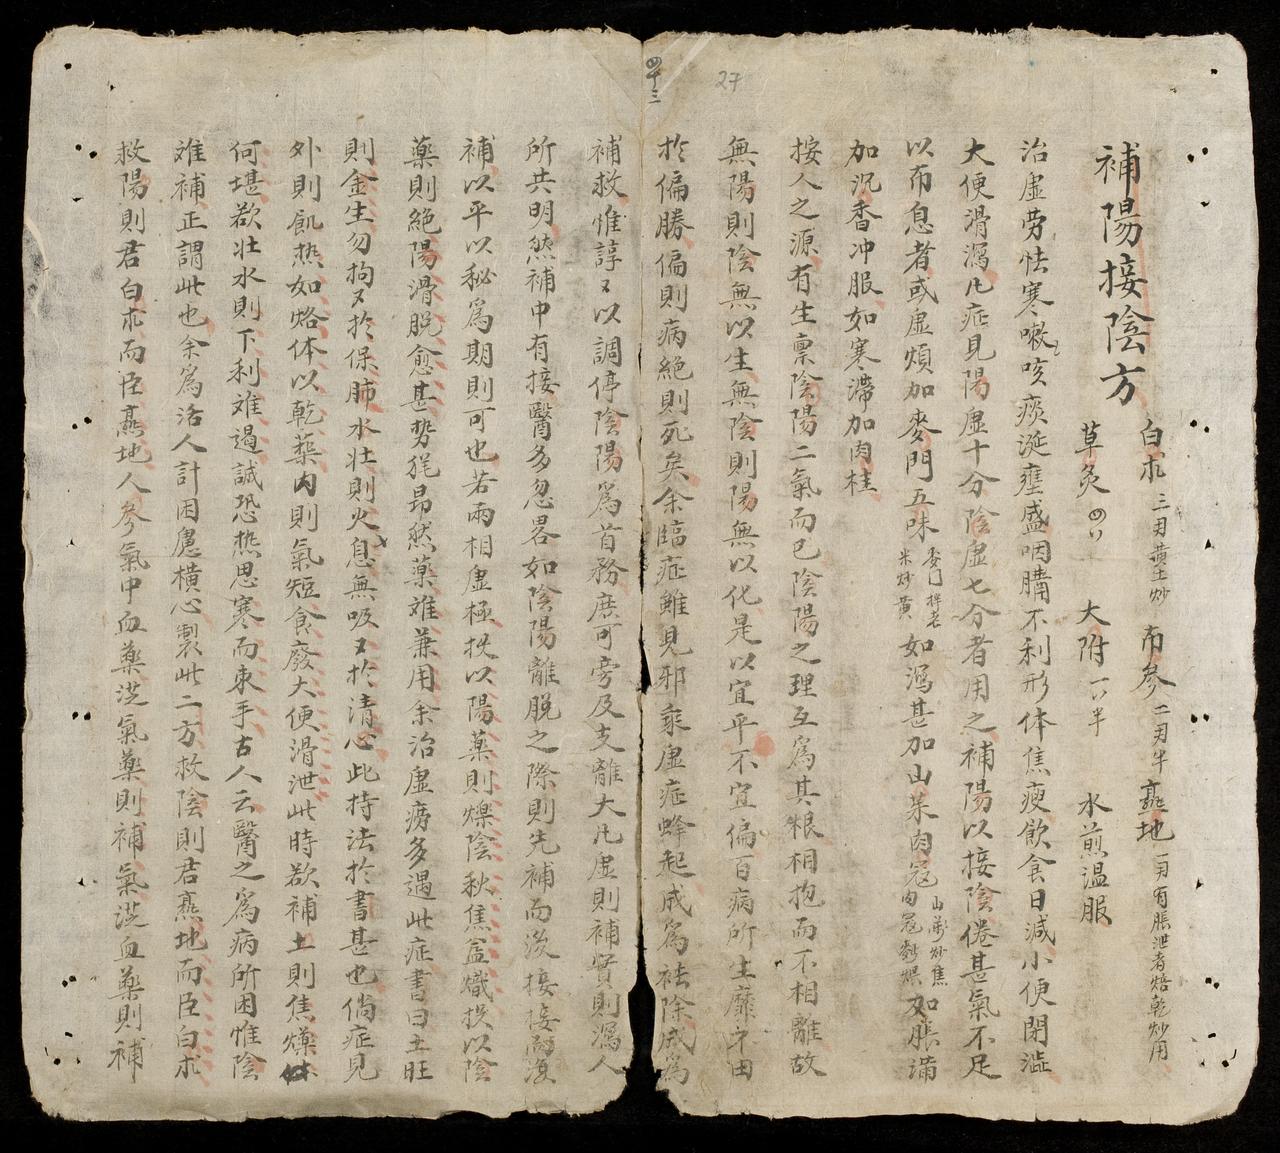 四十三
27
補陽接陰方
白朮三両黄土炒 布參二両半 熟地一両有脹泄者焙乾炒用
草灸四 大附一半 水煎温服
治虚劳怯寒嗽咳痰涎壅盛咽膈不利形体焦瘦飲食日減小便閉澁
大便滑瀉凡症見陽虚十分陰虚七分者用之補陽以接陰倦甚氣不足
以布息者或虚煩加麥門五味
麥門拌老
米炒黄
如瀉甚加山茱肉冠
山薬炒焦
如脹满
加沉香冲服如寒滯加肉桂
按人之源有生禀陰陽二氣而已陰陽之理互爲其根相抱而不相離故
無陽則陰無以生無陰則陽無以化是以宜平不宜偏百病所生靡不由
於偏勝偏則病絶則死矣余臨症雖見邪乘虚症蜂起咸爲祛除咸爲
補救惟諄〻以調停陰陽爲首務庶可旁及支離大凡虚則補實則瀉人
所共明然補中有接醫多忽畧如陰陽離脱之際則先補而後接接而後
補以平以秘爲期則可也若兩相虚極投以陽薬則爍陰秋焦盆熾投以陰
薬則絶陽滑脱愈甚势旣昂然薬难兼用余治虚痨多遇此症書曰土旺
則金生勿拘〻於保肺水壮則火息無吸〻於清心此持法於書甚也倘症見
外則飢热如烙体以乾藥内則氣短食廢大便滑泄此時欲補土則焦燥
何堪欲壮水則下利难遏誠恐热思寒而束手古人云醫之爲病所困惟陰
难補正謂此也余爲活人計困慮横心製此二方救陰則君熟地而臣白朮
救陽則君白朮而臣熟地人參氣中血薬從氣薬則補氣從血薬則補